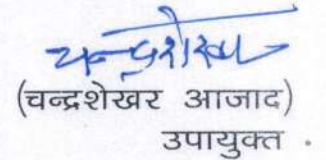 चन्द्रशेखर
(चन्द्रशेखर आजाद)
उपायुक्त .